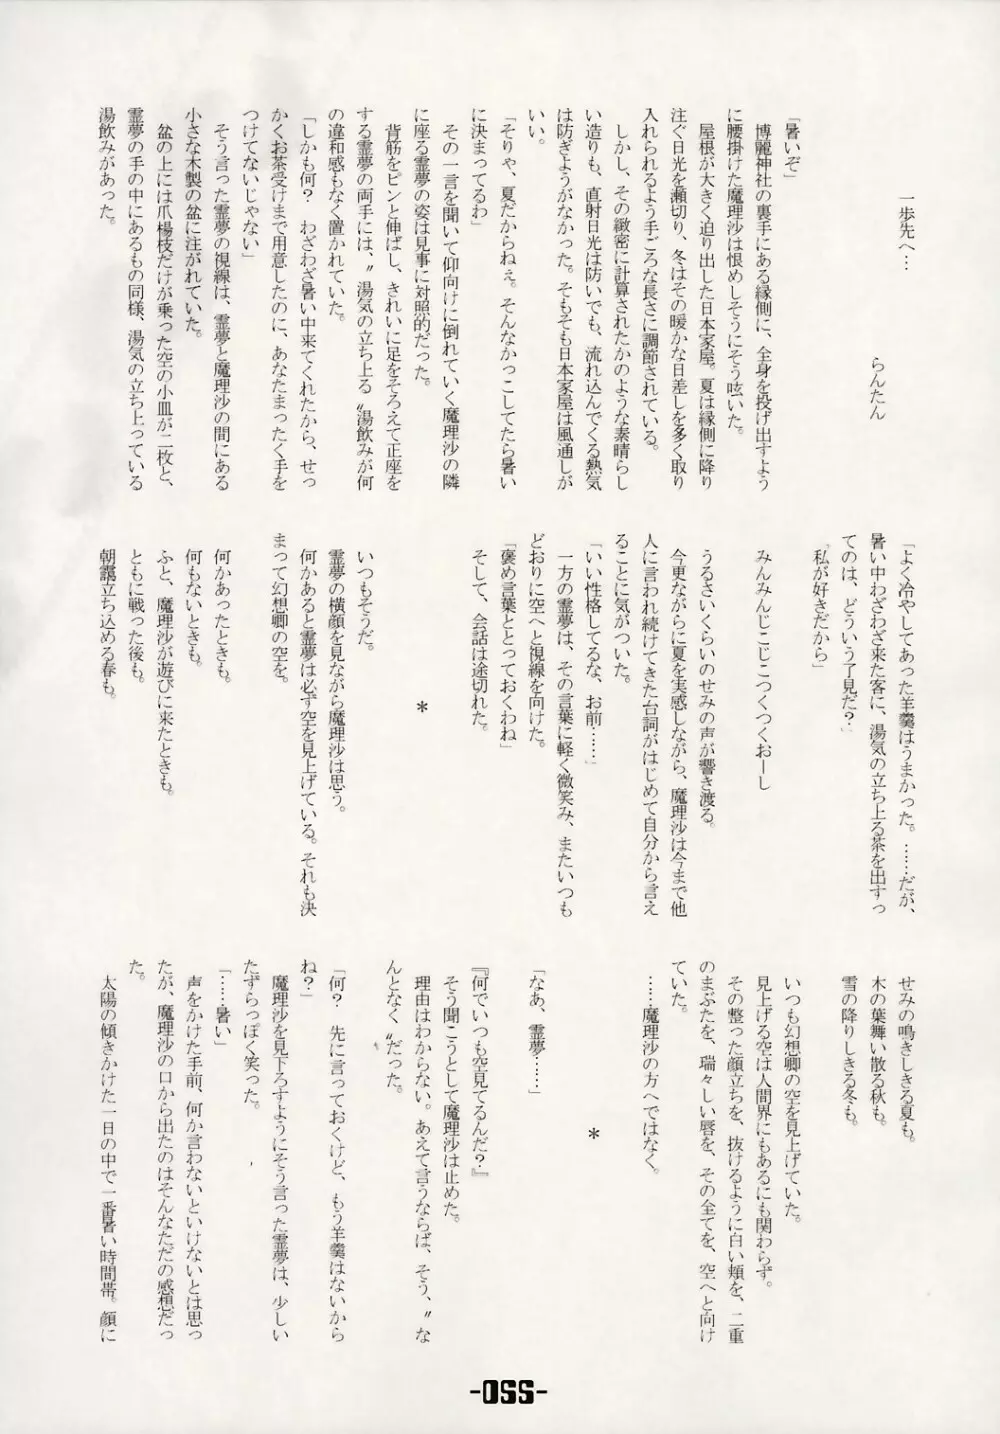 一歩先へ…
らんたん
「暑いぞ」
　博麗神社の裏手にある縁側に、全身を投げ出すよう
に腰掛けた魔理沙は恨めしそうにそう呟いた。
　屋根が大きく迫り出した日本家屋。夏は縁側に降り
注ぐ日光を遮切り、冬はその暖かな日差しを多く取り
入れられるよう手ごろな長さに調節されている。
　しかし、その緻密に計算されたかのような素晴らし
い造りも、直射日光は防いでも、流れ込んでくる熱気
は防ぎようがなかった。そもそも日本家屋は風通しが
いい。
「そりゃ、夏だからねぇ。そんなかっこしてたら暑い
に決まってるわ」
　その一言を聞いて仰向けに倒れていく魔理沙の隣
に座る霊夢の姿は見事に対照的だった。
　背筋をピンと伸ばし、きれいに足をそろえて正座を
する霊夢の両手には、〝湯気の立ち上る〟湯飲みが何
の違和感もなく置かれていた。
「しかも何？　わざわざ暑い中来てくれたから、せっ
かくお茶受けまで用意したのに、あなたまったく手を
つけてないじゃない」
　そう言った霊夢の視線は、霊夢と魔理沙の間にある
小さな木製の盆に注がれていた。
　盆の上には爪楊枝だけが乗った空の小皿が二枚と、
霊夢の手の中にあるもの同様、湯気の立ち上っている
湯飲みがあった。
「よく冷やしてあった羊羹はうまかった。……だが、
暑い中わざわざ来た客に、湯気の立ち上る茶を出すっ
てのは、どういう了見だ？」
「私が好きだから」
　みんみんじこじこつくつくおーし
　うるさいくらいのせみの声が響き渡る。
　今更ながらに夏を実感しながら、魔理沙は今まで他
人に言われ続けてきた台詞がはじめて自分から言え
ることに気がついた。
「いい性格してるな、お前……」
　一方の霊夢は、その言葉に軽く微笑み、またいつも
どおりに空へと視線を向けた。
「褒め言葉ととっておくわね」
　そして、会話は途切れた。
＊
　いつもそうだ。
　霊夢の横顔を見ながら魔理沙は思う。
　何かあると霊夢は必ず空を見上げている。それも決
まって幻想卿の空を。
　何かあったときも。
　何もないときも。
　ふと、魔理沙が遊びに来たときも。
　ともに戦った後も。
　朝靄立ち込める春も。
　せみの鳴きしきる夏も。
　木の葉舞い散る秋も。
　雪の降りしきる冬も。
　いつも幻想卿の空を見上げていた。
　見上げる空は人間界にもあるにも関わらず。
　その整った顔立ちを、抜けるように白い頬を、二重
のまぶたを、瑞々しい唇を、その全てを、空へと向け
ていた。
　……魔理沙の方へではなく。
＊
「なあ、霊夢……」
『何でいつも空見てるんだ？』
　そう聞こうとして魔理沙は止めた。
　理由はわからない。あえて言うならば、そう、〝な
んとなく〟だった。
「何？　先に言っておくけど、もう羊羹はないから
ね？」
　魔理沙を見下ろすようにそう言った霊夢は、少しい
たずらっぽく笑った。
「……暑い」
　声をかけた手前、何か言わないといけないとは思っ
たが、魔理沙の口から出たのはそんなただの感想だっ
た。
　太陽の傾きかけた一日の中で一番暑い時間帯。顔に
-055-